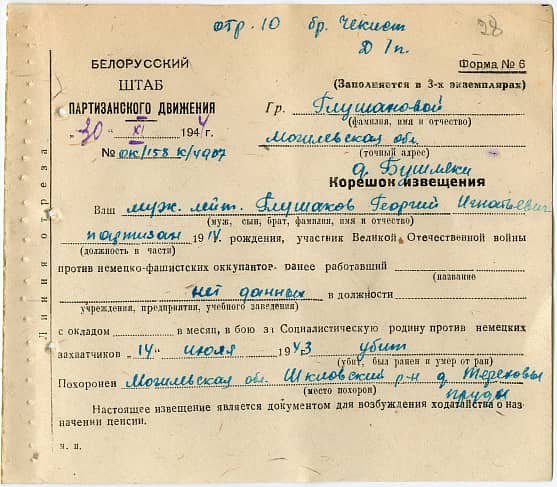 отр. 10 бр. Чекист
Д 1 п.
28
БЕЛОРУССКИЙ
ШТАБ
ПАРТИЗАНСКОГО ДВИЖЕНИЯ
„30“ XI 1944 г.
№ ОК/158 К/4907
Форма № 6
(Заполняется в 3-х экземплярах)
Гр. Глушаковой
(фамилия, имя и отчество)
Могилевская обл.
(точный адрес)
д. Бушляки
Корешок извещения
Линия отреза
Ваш муж. лейт. Глушаков Георгий Игнатьевич
(муж, сын, брат, фамилия, имя и отчество)
партизан 1914 рождения, участник Великой Отечественной войны
(должность в части)
против немецко-фашистских оккупантор. ранее работавший
(название
нет данных в должности
учреждения, предприятия, учебного заведения)
с окладом в месяц, в бою зı Социалистическую родину против немецких
захватчиков „14“ июля 1943 убит
(убит, был ранен и умер от ран)
Похоронен Могилевская обл. Шкловский р-н д. Тереховы
(место похорон) пруды
Настоящее извещение является документом для возбуждения ходатайства о наз
начении пенсии.
м. п.